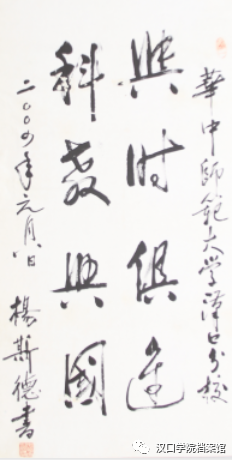 華中師範大学漢口分校
與时俱進
科教興國
二〇〇四年元月八日
楊斯德書
汉口学院档案馆